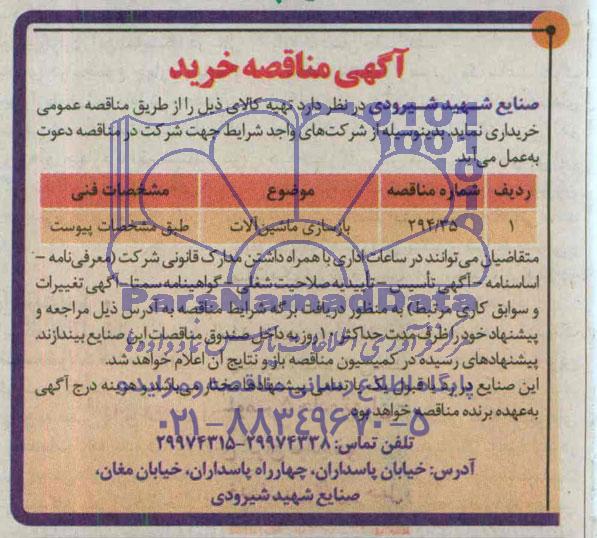 آگهی مناقصه خرید
صنایع شهید شیرودی در نظر دارد تهیه کالای ذیل را از طریق مناقصه عمومی
خریداری نماید. بدینوسیله از شرکت‌های واجد شرایط جهت شرکت در مناقصه دعوت
به‌عمل می‌آید.
ردیف شماره مناقصه موضوع مشخصات فنی
۱ ۲۹۴/۳۵ بازسازی ماشین‌آلات طبق مشخصات پیوست
متقاضیان می‌توانند در ساعات اداری با همراه داشتن مدارک قانونی شرکت (معرفی‌نامه -
اساسنامه - آگهی تأسیس - تأییدیه صلاحیت شغلی - گواهینامه سمتا - آگهی تغییرات
و سوابق کاری مرتبط) به منظور دریافت برگه شرایط مناقصه به آدرس ذیل مراجعه و
ParsNamadData
پیشنهاد خود را ظرف مدت حداکثر ۱۰ روز به داخل صندوق مناقصات این صنایع بیندازند.
پیشنهادهای رسیده در کمیسیون مناقصه باز و نتایج آن اعلام خواهد شد.
این صنایع در رد یا قبول یک یا تمامی پیشنهادها مختار می‌باشد. هزینه درج آگهی
به‌عهده برنده مناقصه خواهد بود.
۰۲۱-۸۸۳۴۹۶۷۰-۵
تلفن تماس: ۲۹۹۷۴۳۳۸-۲۹۹۷۴۳۱۵
آدرس: خیابان پاسداران، چهارراه پاسداران، خیابان مغان،
صنایع شهید شیرودی